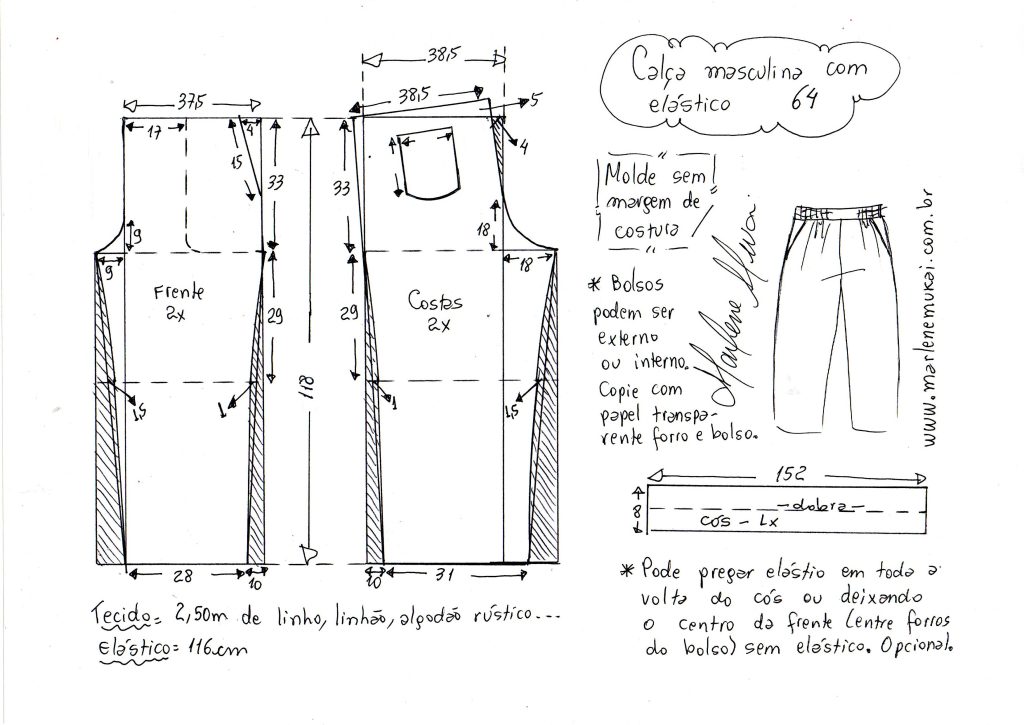 38,5
37,5
38,5
5
17
4
4
15
33
33
118
18
9
9
18
Frente
2x
Costas
2x
29
29
1,5
1
1
1,5
28
10
10
31
Tecido = 2,50m de linho, linhão, algodão rústico...
Elástico = 116cm
Calça masculina com
elástico 64
Molde sem
margem de
costura
* Bolsos
podem ser
externo
ou interno.
Copie com
papel transpa-
rente forro e bolso.
Marlene Mukai
www.marlenemukai.com.br
152
8
dobra
cós - 1x
* Pode pregar elástio em toda a
volta do cós ou deixando
o centro da frente (entre forros
do bolso) sem elástico. Opcional.